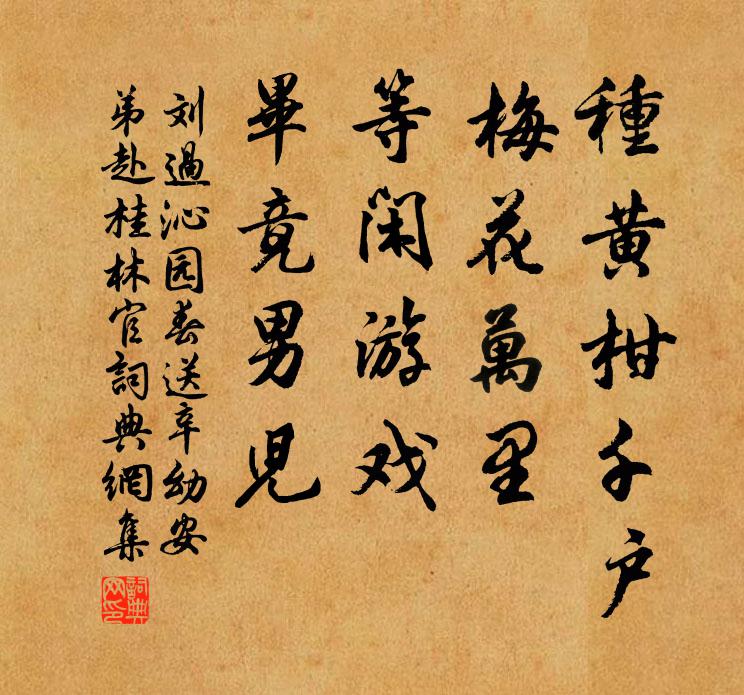 種黄柑千户
梅花萬里
等閑游戏
畢竟男児
刘過沁园春送辛幼安
弟赴桂林官詞典網集
詞典网印